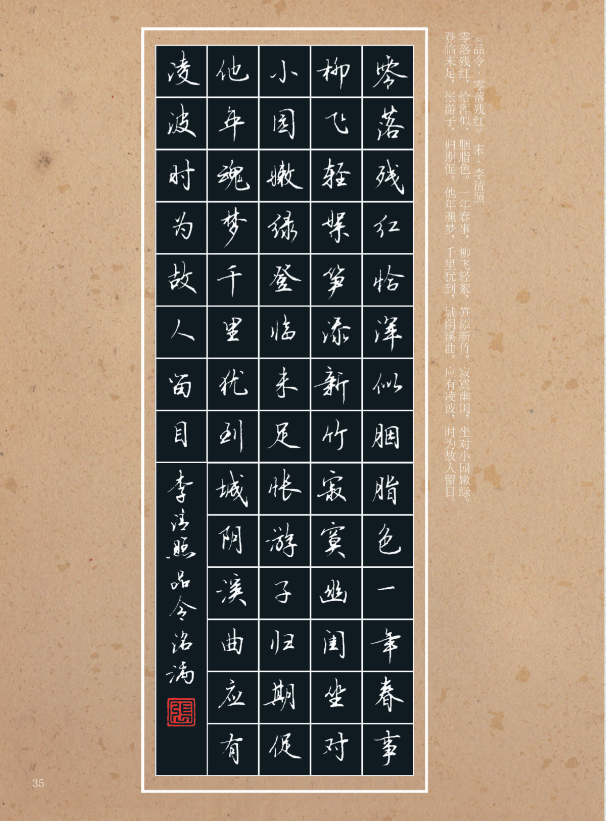 零落残红恰浑似胭脂色一年春事
柳飞轻絮笋添新竹寂寞幽闺坐对
小园嫩绿登临未足怅游子归期促
他年魂梦千里犹到城阴溪曲应有
凌波时为故人留目
李清照品令洺满
張
《品令·零落残红》 宋·李清照
零落残红，恰浑似、胭脂色。一年春事，柳飞轻絮，笋添新竹。寂寞幽闺，坐对小园嫩绿。
登临未足，怅游子、归期促。他年魂梦，千里犹到，城阴溪曲。应有凌波，时为故人留目。
35